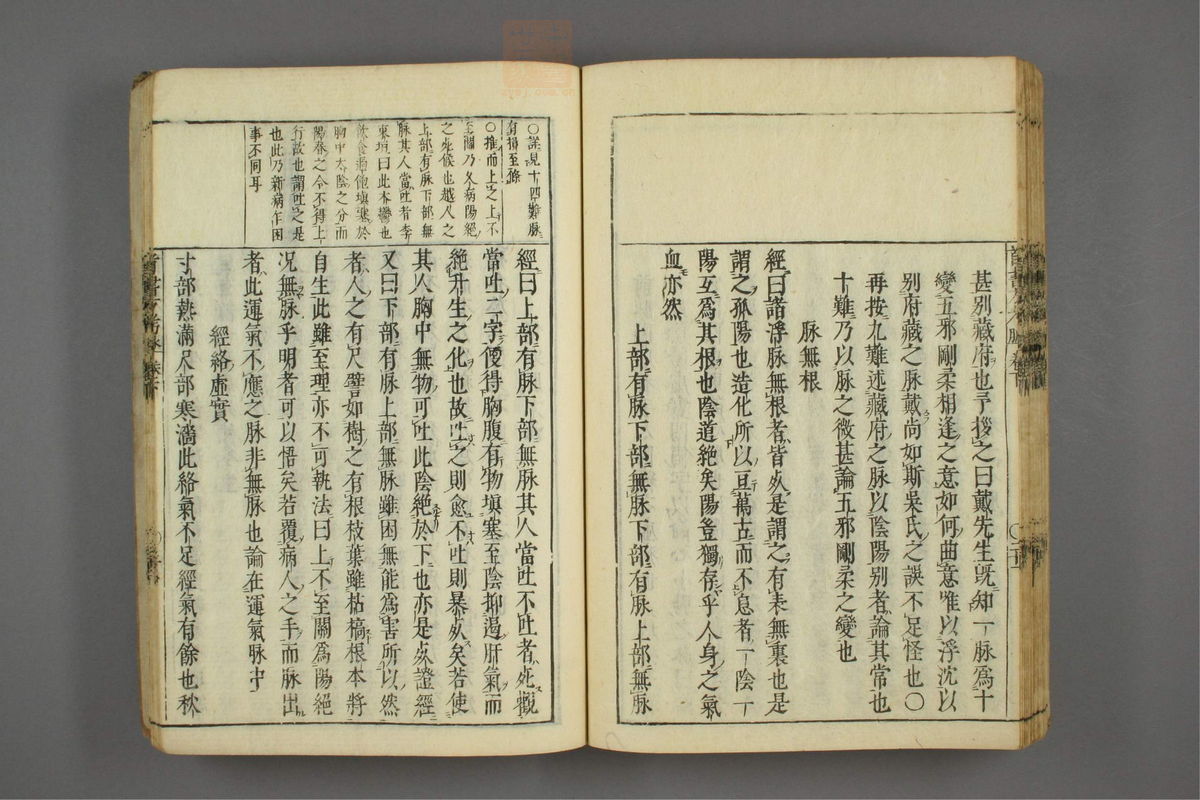 甚別藏府也予按之曰戴先生既知一脉爲十
變五邪剛柔相逢之意如何曲意唯以浮沈以
別府藏之脉戴尚如斯吳氏之誤不足怪也〇
再按九難述藏府之脉以陰陽別者論其常也
十難乃以脉之微甚論五邪剛柔之變也
脉無根
經曰諸浮脉無根者皆死是謂之有表無裏也是
謂之孤陽也造化所以亘萬古而不息者一陰一
陽互爲其根也陰道絶矣陽豈獨存乎人身之氣
血亦然
上部有脉下部無脉下部有脉上部無脉
〇詳見十四難脉
有損至條
〇推而上之上不
至關乃久病陽絕
之死候也越人之
上部有脉下部無
脉其人當吐者李
東垣曰此木鬱也
飲食過飽填塞於
胸中太陰之分而
陽春之令不得上
行故也謂吐之是
也此乃新病乍困
事不同耳
經曰上部有脉下部無脉其人當吐不吐者死觀
當吐二字便得胸腹有物填塞至陰抑遏肝氣而
絶升生之化也故吐之則愈不吐則暴死矣若使
其人胸中無物可吐此陰絕於下也亦是死證經
又曰下部有脉上部無脉雖困無能爲害所以然
者人之有尺譬如樹之有根枝葉雖枯槁根本將
自生此雖至理亦不可執法曰上不至關爲陽絕
况無脉乎明者可以悟矣若覆病人之手而脉出
者此運氣不應之脉非無脉也論在運氣脉中
經絡虛實
寸部熱滿尺部寒濇此絡氣不足經氣有餘也秋